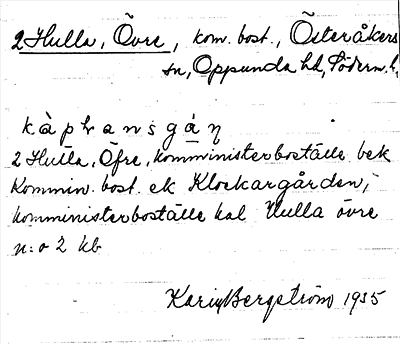 2 Hulla, Övre, kom. bost., Österåkers
sn, Oppunda hd, Söderm. l.
kàplansgán
2 Hulla, Öfre, komministerboställe bek
Kommin. bost. ek Klockargården,
komministerboställe kal Hulla övre
n:o 2 kb
Karin Bergström 1935